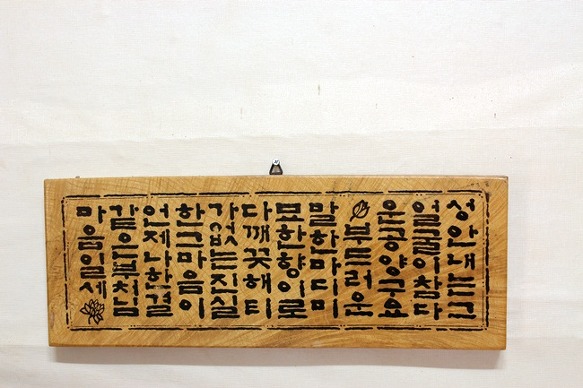 성안내는그
얼굴이참다
운공양구요
부드러운
말한마디미
묘한향이로
다깨끗해티
가없는진실
한그마음이
언제나한결
같은부처님
마음일세